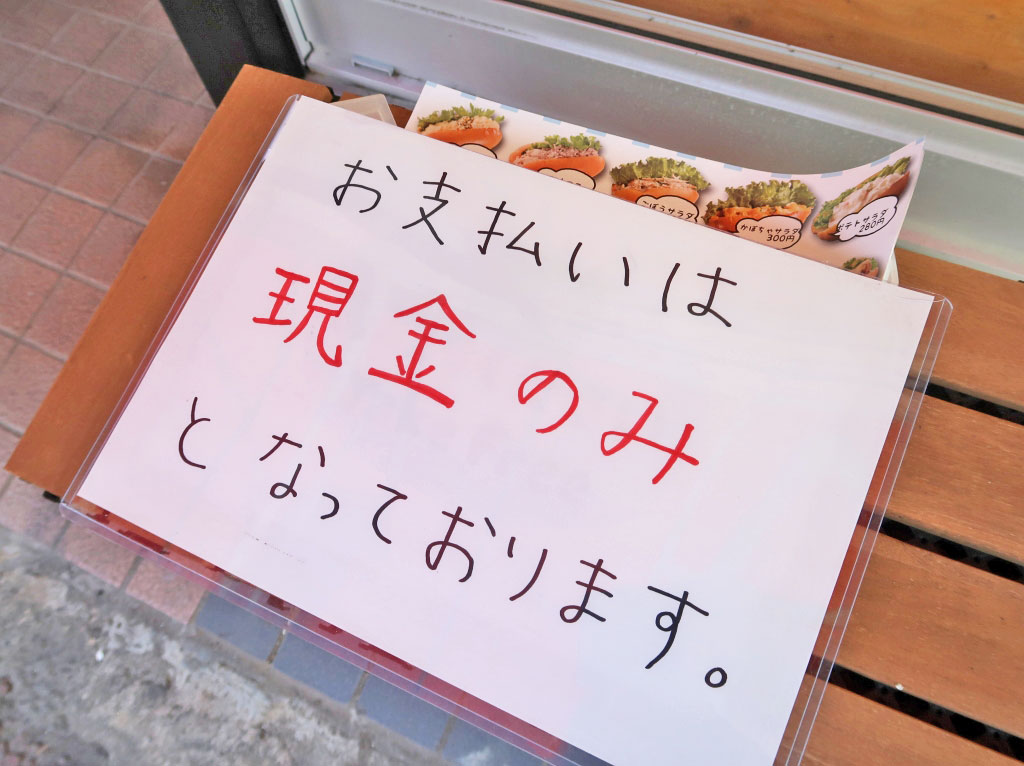 ごぼうサラダ
かぼちゃサラダ
300円
ポテトサラダ
280円
お支払いは
現金のみ
となっております。